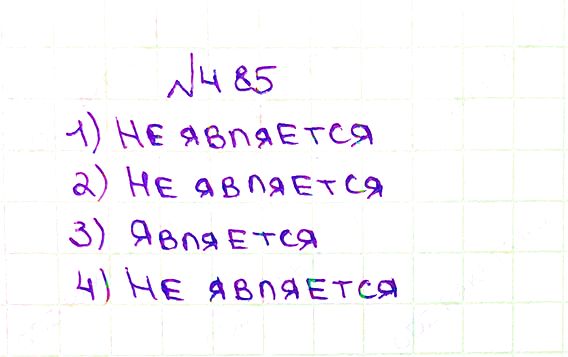 №485
1) Не является
2) Не является
3) Является
4) Не является